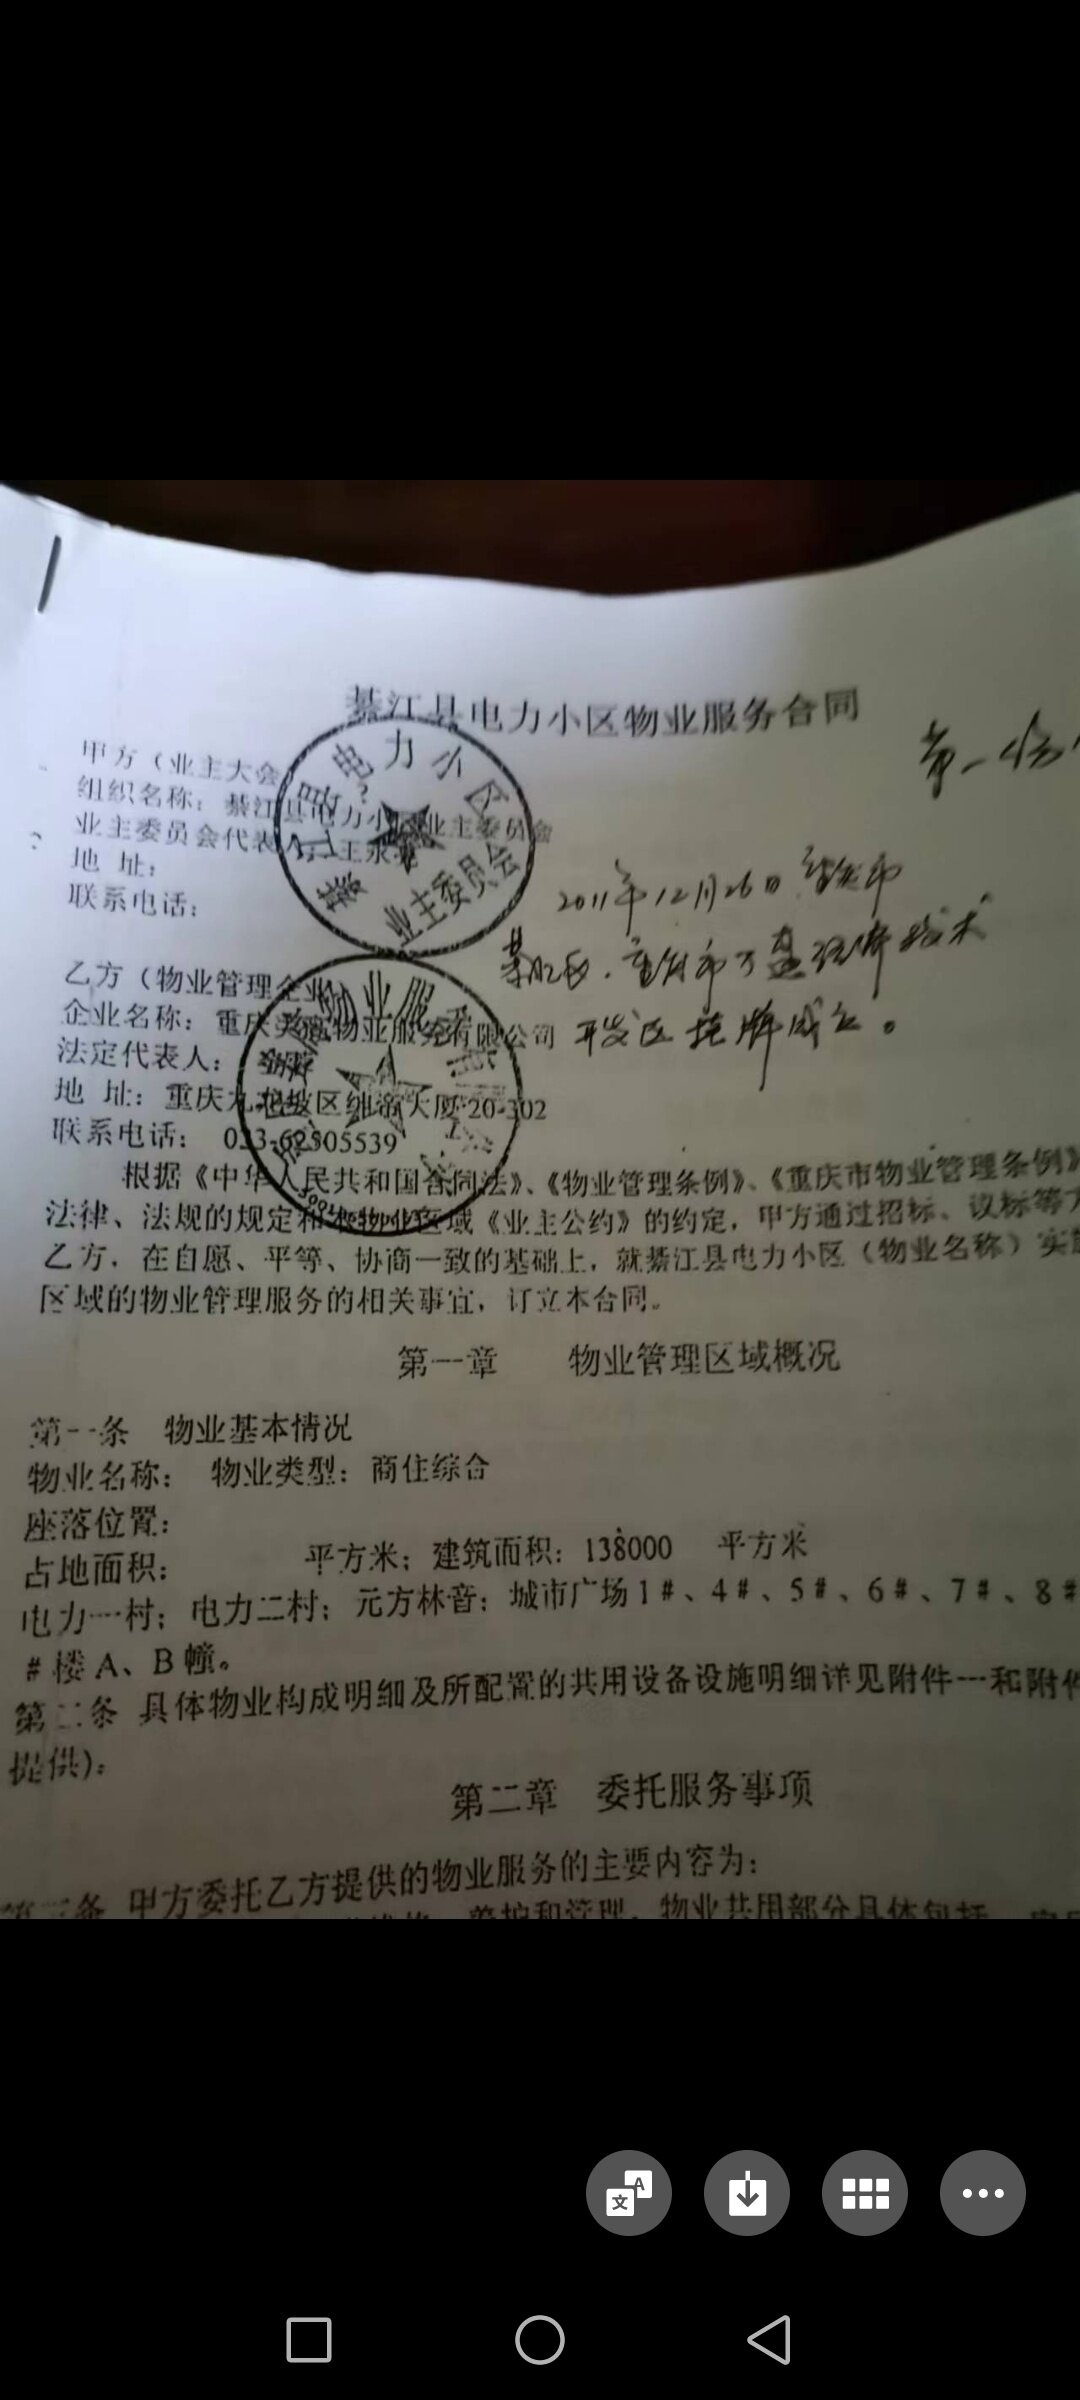 綦江县电力小区物业服务合同
甲方（业主大会
组织名称：綦江县电力小区业主委员会
业主委员会代表人：王永
地 址：
联系电话：
电力小区
业主委员会
2011年12月26日
乙方（物业管理企业
企业名称：重庆 物业服务有限公司
开发区挂牌成立。
法定代表人：
地 址：重庆九龙坡区 大厦20-302
联系电话： 023-62505539
根据《中华人民共和国合同法》、《物业管理条例》、《重庆市物业管理条例》
法律、法规的规定和本物业区域《业主公约》的约定，甲方通过招标、议标等
乙方，在自愿、平等、协商一致的基础上，就綦江县电力小区（物业名称）实
区域的物业管理服务的相关事宜，订立本合同。
第一章 物业管理区域概况
第一条 物业基本情况
物业名称： 物业类型：商住综合
座落位置：
占地面积： 平方米；建筑面积：138000 平方米
电力一村；电力二村；元方林音；城市广场1#、4#、5#、6#、7#、8#
#楼A、B幢。
第二条 具体物业构成明细及所配置的共用设备设施明细详见附件一和附件
提供)：
第二章 委托服务事项
第三条 甲方委托乙方提供的物业服务的主要内容为：
养护和管理，物业共用部分具体包括